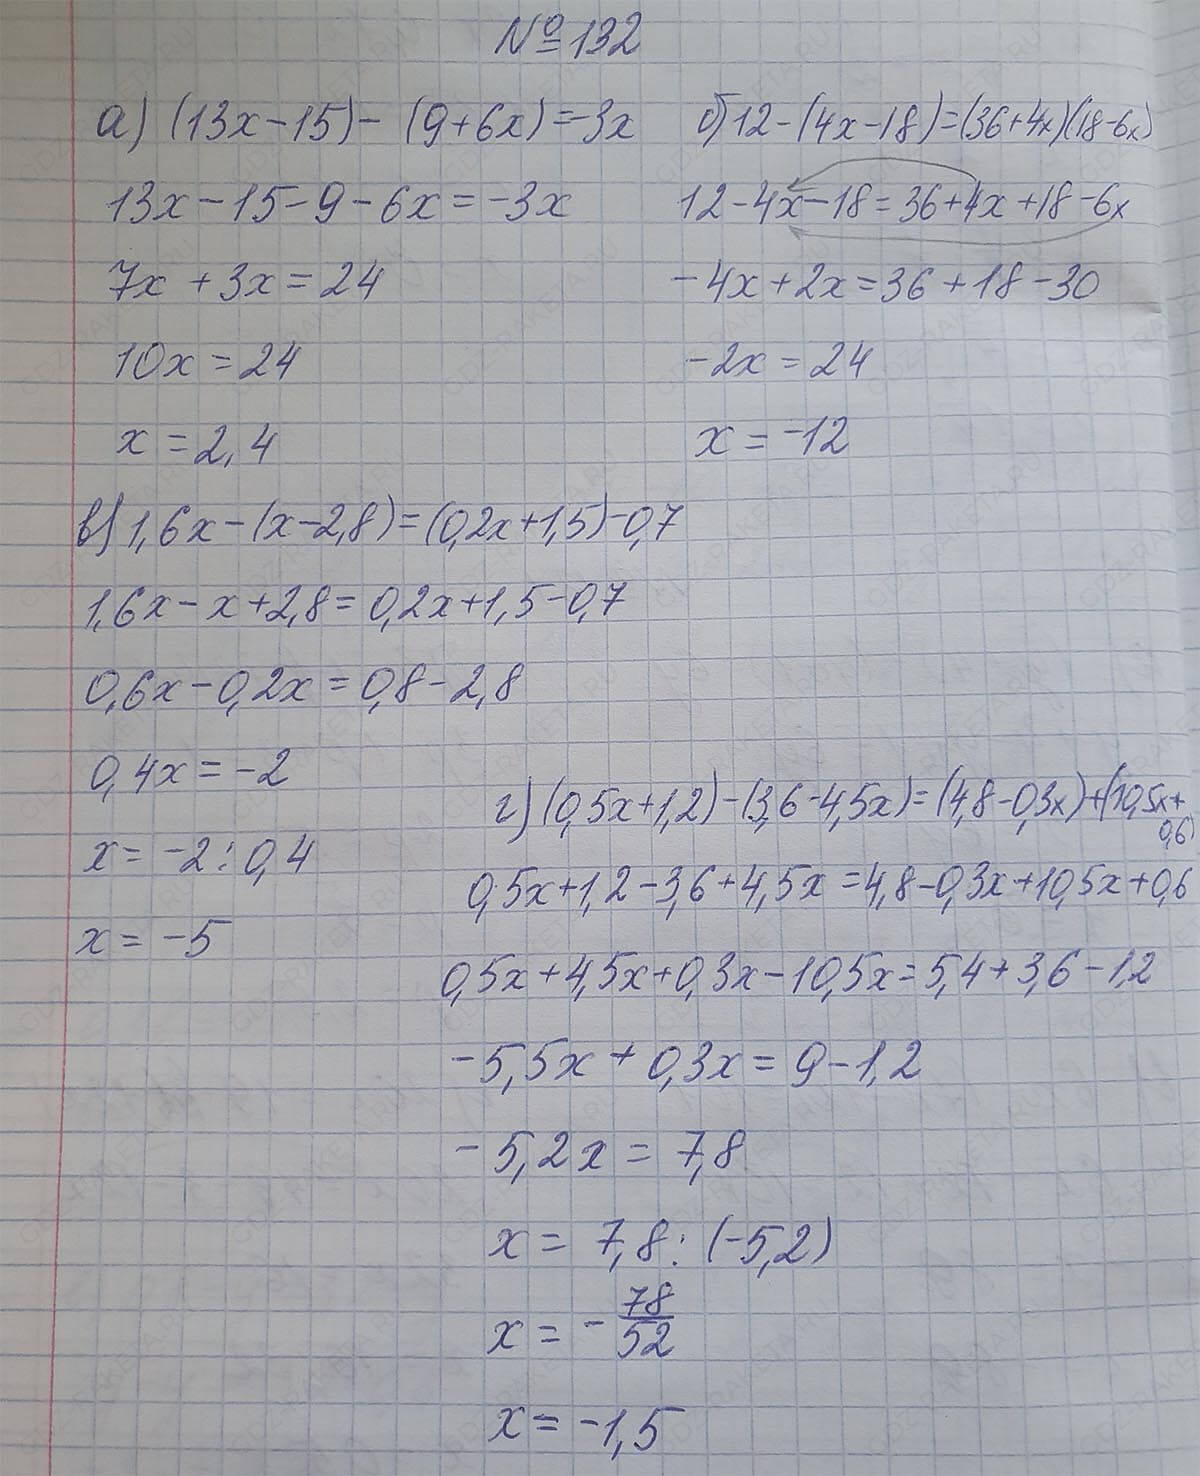 №132
а) (13x-15)-(9+6x)=-3x
13x-15-9-6x=-3x
7x+3x=24
10x=24
x=2,4
б) 12-(4x-18)=(36+4x)(18-6x)
12-4x-18=36+4x+18-6x
-4x+2x=36+18-30
-2x=24
x=-12
в) 1,6x-(x-2,8)=(0,2x+1,5)-0,7
1,6x-x+2,8=0,2x+1,5-0,7
0,6x-0,2x=0,8-2,8
0,4x=-2
x=-2:0,4
x=-5
г) (0,5x+1,2)-(3,6-4,5x)=(4,8-0,3x)+(10,5x+
0,6)
0,5x+1,2-3,6+4,5x=4,8-0,3x+10,5x+0,6
0,5x+4,5x+0,3x-10,5x=5,4+3,6-1,2
-5,5x+0,3x=9-1,2
-5,2x=7,8
x=7,8:(-5,2)
x=-78/52
x=-1,5